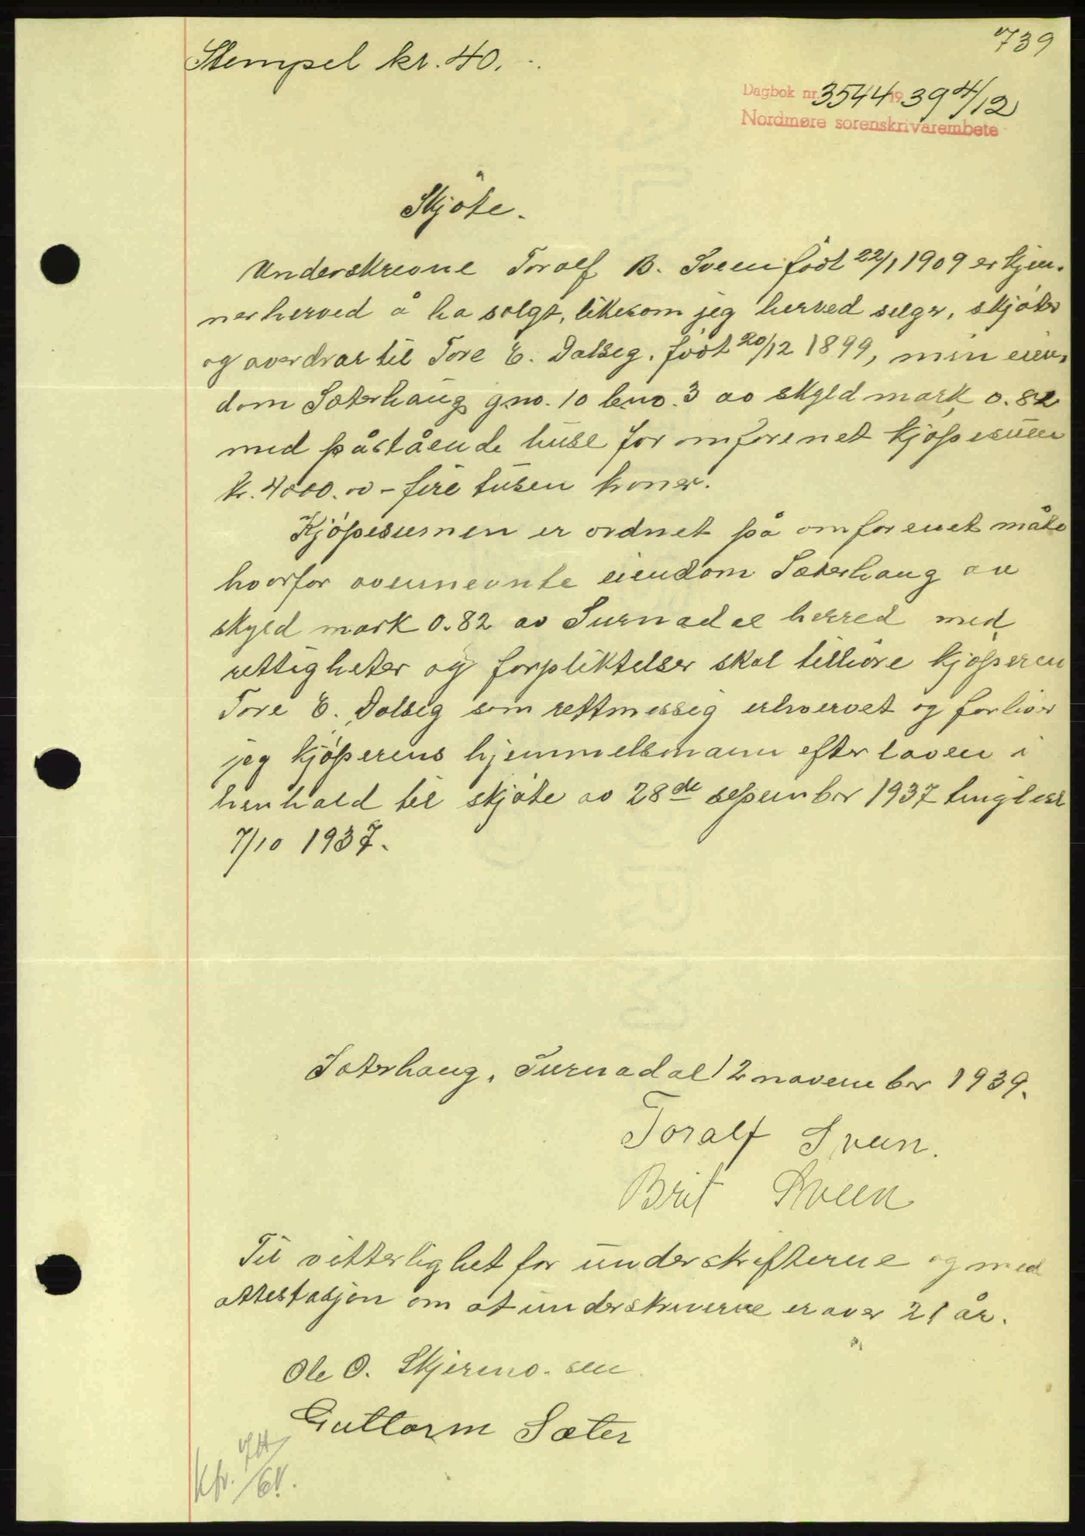 739
Stempel kr. 40.-.
Dagbok nr. 3544 19 39 4/12
Nordmøre sorenskrivarembete
Skjøte.
Underskrevne Toralf B. Sveen født 22/1 1909 erkjen-
ner herved å ha solgt, likesom jeg herved selger, skjøter
og overdrar til Tore E. Dalseg, født 20/12 1899, min eien-
dom Sæterhaug gno. 10 bno. 3 av skyld mark 0.82
med påstående huse for omforenet kjøpesum
kr. 4000.00 - fire tusen kroner.
Kjøpesumen er ordnet på omforenet måte
hvorfor ovennevnte eiendom Sæterhaug av
skyld mark 0.82 av Surnadal herred med
rettigheter og forpliktelser skal tilhøre kjøperen
Tore E. Dalseg som rettmessig erhvervet og forblir
jeg kjøperens hjemmelsmann efter loven i
henhold til skjøte av 28de september 1937 tinglest
7/10 1937.
Sæterhaug, Surnadal 12 november 1939.
Toralf Sveen.
Brit Sveen
Til vitterlighet for underskrifterne og med
attestasjon om at underskriverne er over 21 år.
Ole O. Skjermo. sen
Guttorm Sæter
kfr. 74/61.